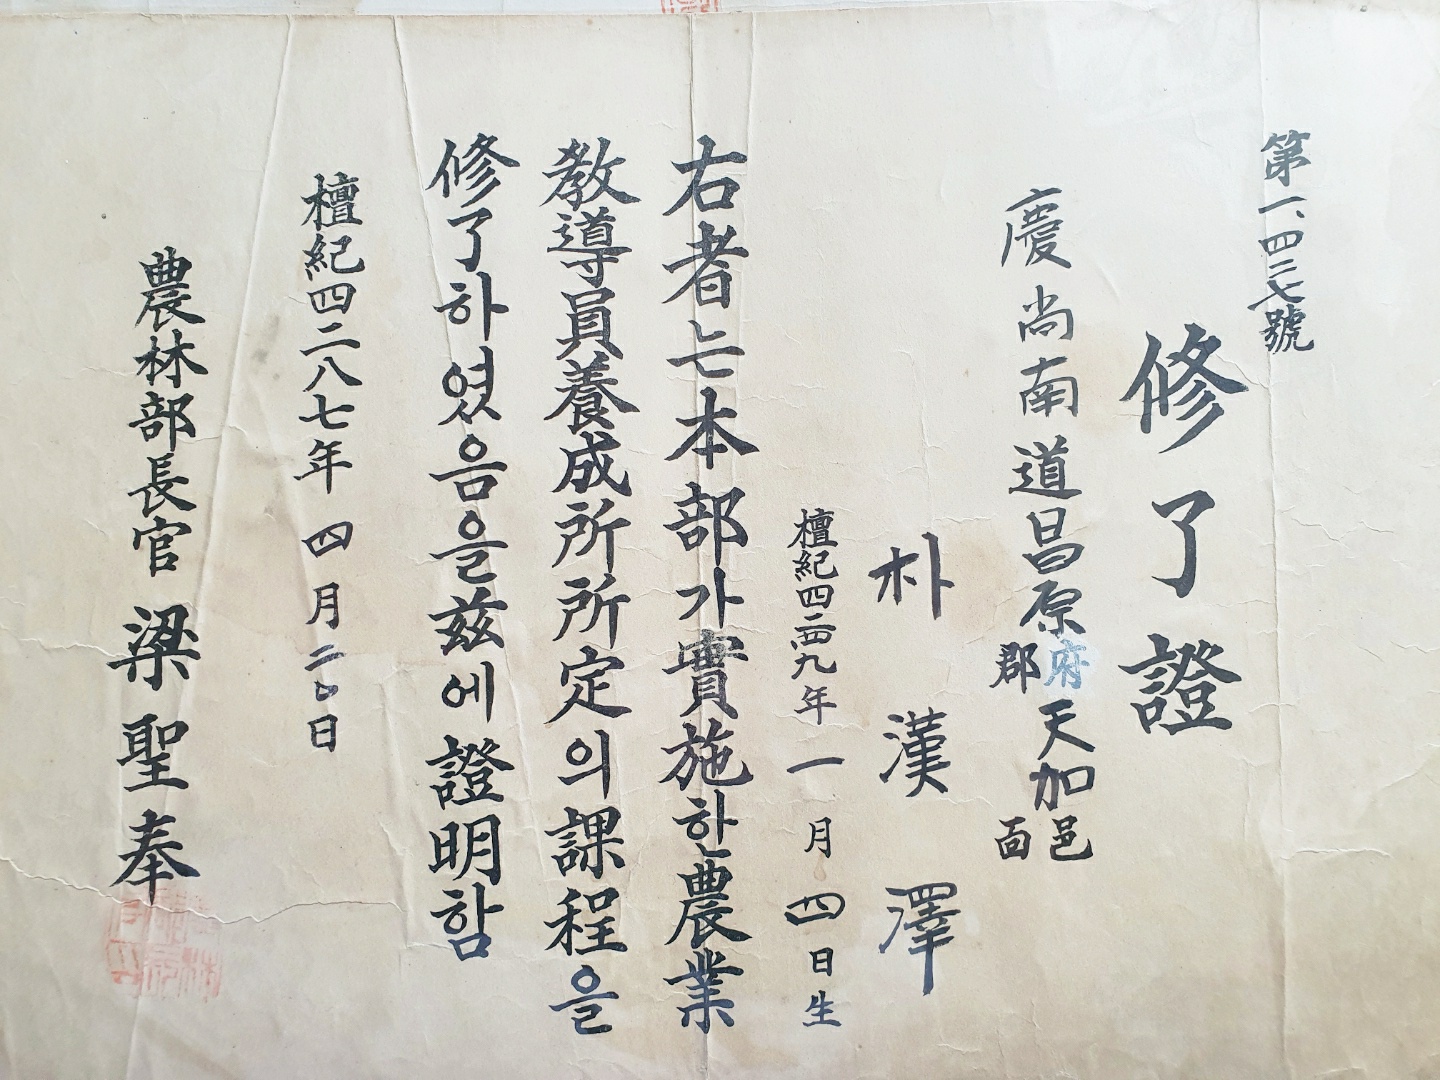 第一、四二七號
修了證
慶尚南道昌原府郡天加邑面
朴漢澤
檀紀四二四九年一月四日生
右者는本部가實施한農業
敎導員養成所所定의課程을
修了하였음을玆에證明함
檀紀四二八七年 四月二〇日
農林部長官 梁聖奉